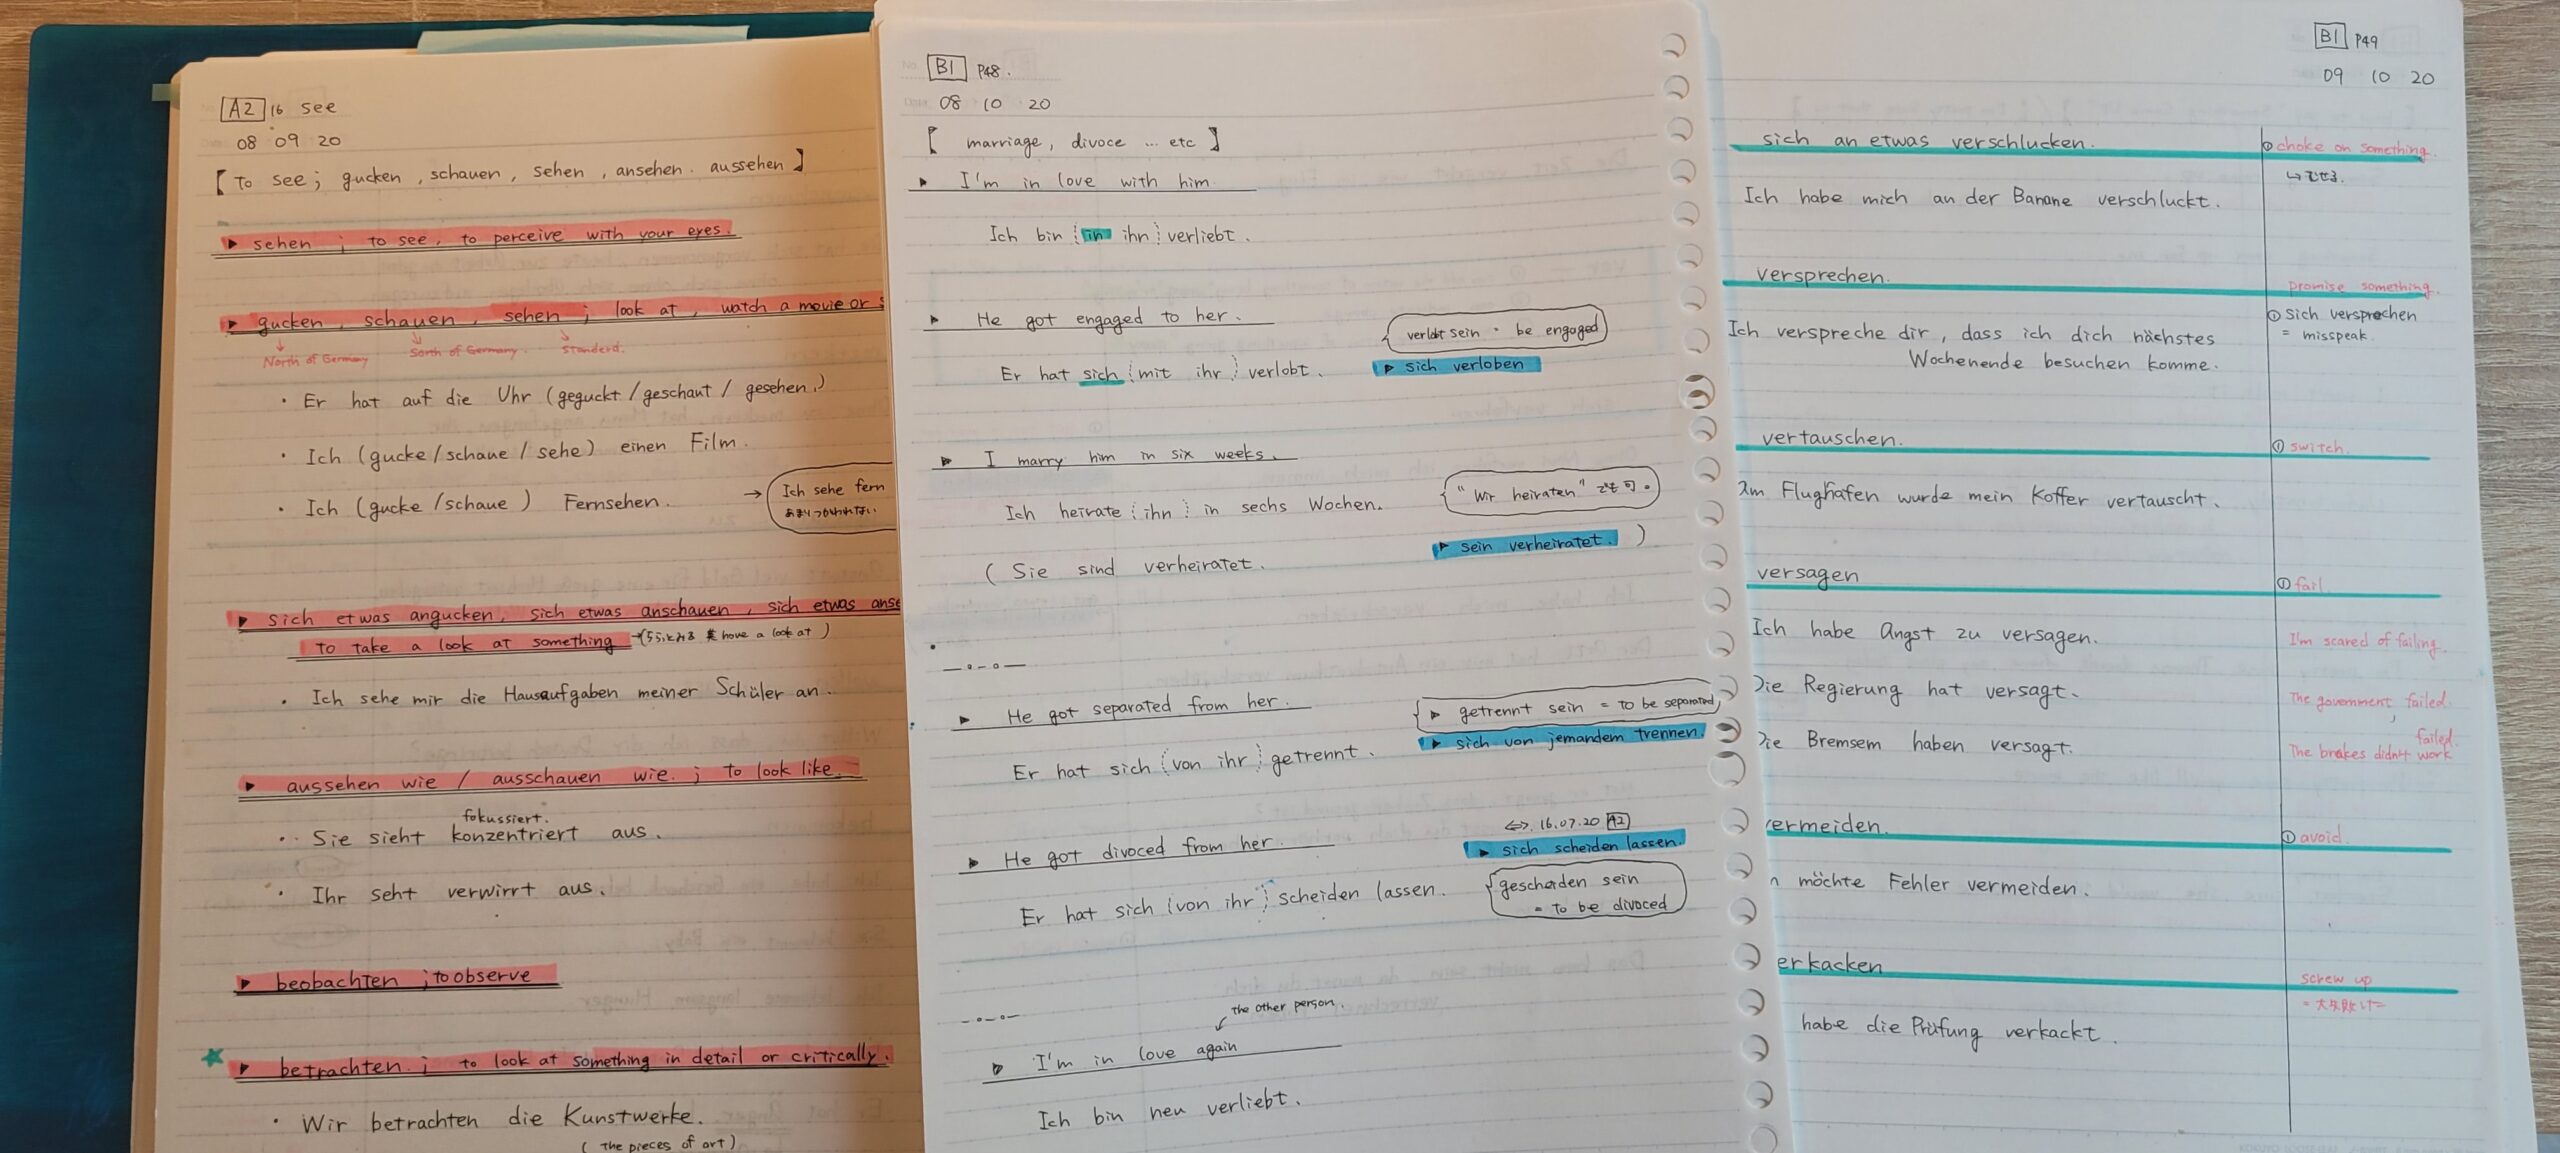 A2 16 see
08 09 20
【 To see ; gucken , schauen , sehen , ansehen . aussehen 】
▶ sehen ; to see , to perceive with your eyes .
▶ gucken , schauen , sehen ; look at , watch a movie or
North of Germany Sorth of Germany . Standerd .
・ Er hat auf die Uhr (geguckt / geschaut / gesehen .)
・ Ich (gucke / schaue / sehe) einen Film .
・ Ich (gucke / schaue ) Fernsehen . → Ich sehe fern
あまりつかわれない
▶ sich etwas angucken , sich etwas anschauen , sich etwas anse
to take a look at something → (ちらっとみる 英 have a look at )
・ Ich sehe mir die Hausaufgaben meiner Schüler an .
▶ aussehen wie / ausschauen wie . ; to look like .
fokussiert .
・ Sie sieht konzentriert aus .
・ Ihr seht verwirrt aus .
▶ beobachten ; to observe
★ ▶ betrachten . ; to look at something in detail or critically .
・ Wir betrachten die Kunstwerke .
( the pieces of art )
B1 P48 .
08 10 20
【 marriage , divoce ... etc 】
▶ I'm in love with him
Ich bin in ihn verliebt .
▶ He got engaged to her .
verlobt sein = be engaged
Er hat sich mit ihr verlobt . ▶ sich verloben
▶ I marry him in six weeks .
Ich heirate ihn in sechs Wochen . "Wir heiraten" でも可 。
( Sie sind verheiratet . ▶ sein verheiratet . )
▶ He got separated from her .
▶ getrennt sein = to be separated
Er hat sich von ihr getrennt . ▶ sich von jemandem trennen .
⇔ 16.07.20 A2
▶ He got divoced from her . ▶ sich scheiden lassen .
Er hat sich von ihr scheiden lassen . gescheiden sein
= to be divoced
the other person .
▶ I'm in love again
Ich bin neu verliebt .
B1 P49
09 10 20
sich an etwas verschlucken . ① choke on something .
↳ むせる .
Ich habe mich an der Banane verschluckt .
versprechen . promise something .
① sich versprechen
= misspeak
Ich verspreche dir , dass ich dich nächstes
Wochenende besuchen komme .
vertauschen . ① switch .
Am Flughafen wurde mein Koffer vertauscht .
versagen ① fail
Ich habe Angst zu versagen . I'm scared of failing .
Die Regierung hat versagt . The government failed .
failed .
Die Bremsem haben versagt . The brakes didn't work
vermeiden . ① avoid .
möchte Fehler vermeiden .
erkacken screw up
= 大失敗した
habe die Prüfung verkackt .